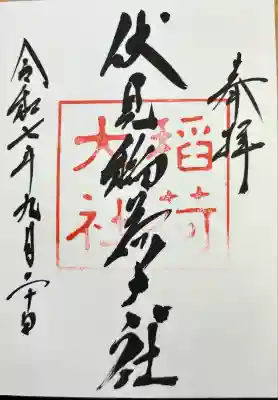 奉拝
伏見稲荷大社
稲荷
大社
令和七年九月二十日